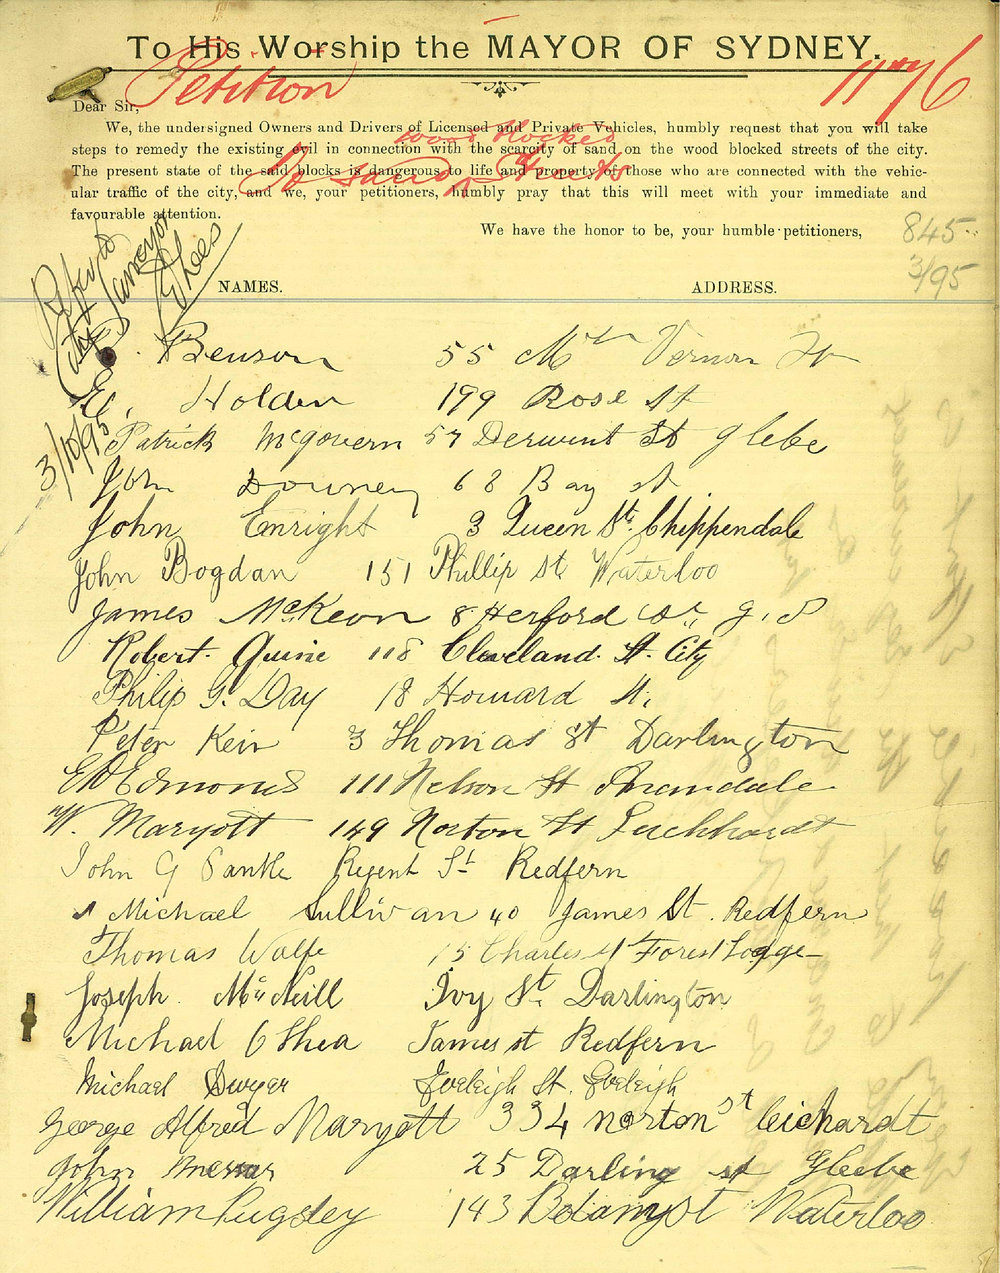 To His Worship the MAYOR OF SYDNEY.
Petition
1176
Dear Sir,
We, the undersigned Owners and Drivers of Licensed and Private Vehicles, humbly request that you will take
wood blocked
steps to remedy the existing evil in connection with the scarcity of sand on the wood blocked streets of the city.
The present state of the said blocks is dangerous to life and property of those who are connected with the vehic-
To sand Streets
ular traffic of the city, and we, your petitioners, humbly pray that this will meet with your immediate and
favourable attention.
We have the honor to be, your humble petitioners,
845
3/95
Refer to
City Surveyor
3/10/95
NAMES. ADDRESS.
Benson 55 Mt Vernon St
E. Holden 199 Rose St
Patrick McGovern 57 Derwent St Glebe
John Downey 68 Bay st
John Enright 3 Queen St. Chippendale
John Bogdan 151 Phillip St Waterloo
James McKeon 8 Herford St, G. P
Robert Quine 118 Cleveland St. City
Philip G. Day 18 Howard St.
Peter Keir 3 Thomas St Darlington
E D Edmonds 111 Nelson St Annandale
W. Maryott 149 Norton St Leichhardt
John G Regent St Redfern
Michael Sullivan 40 James St. Redfern
Thomas Wolfe 15 Charles St Forest Lodge
Joseph McNeill Ivy St. Darlington
Michael O Shea James st Redfern
Michael Dwyer Eveleigh St. Eveleigh
George Alfred Maryott 334 Norton St Leichardt
John 25 Darling st Gleebe
William Pugsley 143 Botany St Waterloo